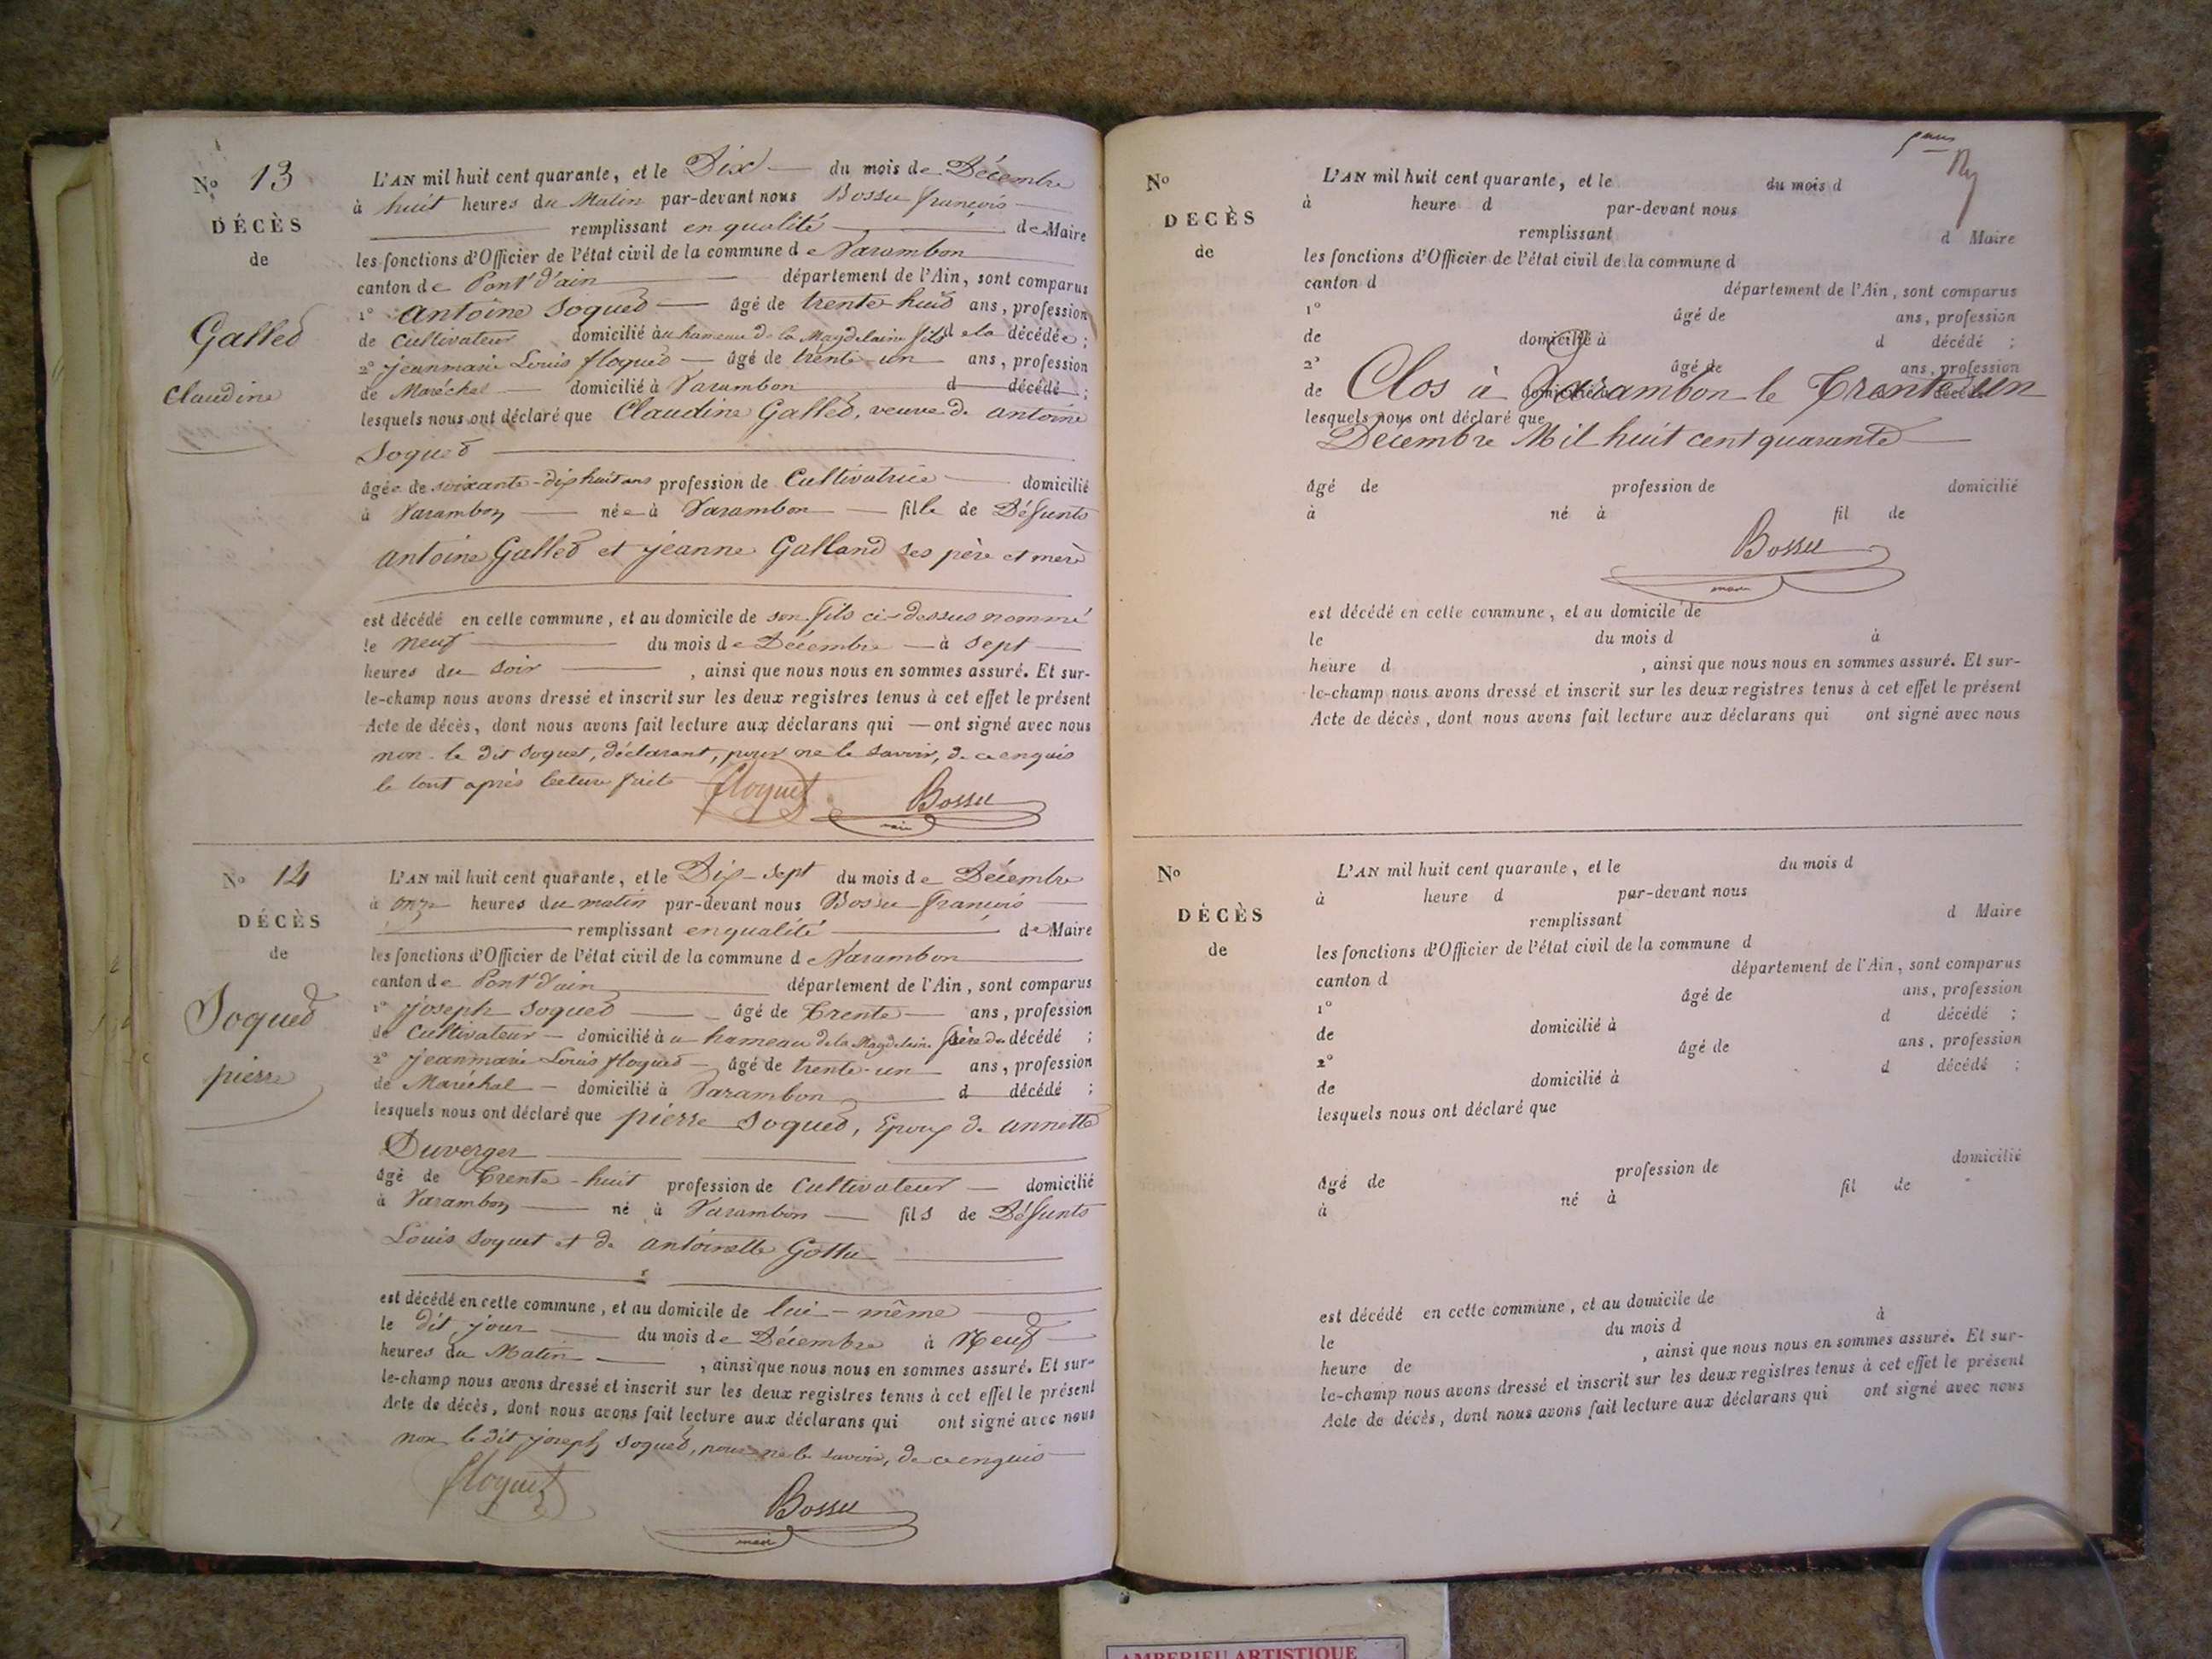 No 13
DÉCÈS
de
Galled
Claudine
L'AN mil huit cent quarante, et le Dix du mois de Décembre
à huit heures du Matin par-devant nous Bossu françois
remplissant en qualité de Maire
les fonctions d'Officier de l'état civil de la commune de Varambon
canton de Pont d'ain département de l'Ain, sont comparus
1° antoine Soqued âgé de trente huid ans, profession
de Cultivateur domicilié au hameau de la Magdelaine fils de la décédée ;
2° jeanmarie Louis floqued âgé de trente-un ans, profession
de Maréchal domicilié à Varambon d décédé ;
lesquels nous ont déclaré que Claudine Galled, veuve de antoine
Soqued
âgée de soixante-dix huit ans profession de Cultivatrice domicilié
à Varambon née à Varambon fille de Défunts
antoine Galled et jeanne Galland ses père et mère
est décédé en cette commune, et au domicile de son fils ci-dessus nommé
le neuf du mois de Décembre à Sept
heures du Soir , ainsi que nous nous en sommes assuré. Et sur-
le-champ nous avons dressé et inscrit sur les deux registres tenus à cet effet le présent
Acte de décès, dont nous avons fait lecture aux déclarans qui ont signé avec nous
non le dit soquet, déclarant, pour ne le savoir, de ce enquis
le tout après lecture faite floquet Bossu
maire
No 14
DÉCÈS
de
Soqued
pierre
L'AN mil huit cent quarante, et le Dix-sept du mois de Décembre
à onze heures du matin par-devant nous Bossu françois
remplissant en qualité de Maire
les fonctions d'Officier de l'état civil de la commune de Varambon
canton de Pont d'ain département de l'Ain, sont comparus
1° joseph Soqued âgé de Trente ans, profession
de Cultivateur domicilié à u hameau de la Magdelaine frère du décédé ;
2° jeanmarie Louis floqued âgé de trente-un ans, profession
de Maréchal domicilié à Varambon d décédé ;
lesquels nous ont déclaré que pierre Soqued, Epoux de annette
Duverger
âgé de Trente-huit profession de Cultivateur domicilié
à Varambon né à Varambon fils de Défunts
Louis Soquet et de antoinette Gottu
est décédé en cette commune, et au domicile de lui-même
le dit jour du mois de Décembre à Neuf
heures du Matin , ainsi que nous nous en sommes assuré. Et sur-
le-champ nous avons dressé et inscrit sur les deux registres tenus à cet effet le présent
Acte de décès, dont nous avons fait lecture aux déclarans qui ont signé avec nous
non le dit joseph Soqued, pour ne le savoir, de ce enquis
floquet
Bossu
maire
No
DÉCÈS
de
L'AN mil huit cent quarante, et le du mois d
à heure d par-devant nous
remplissant d Maire
les fonctions d'Officier de l'état civil de la commune d
canton d département de l'Ain, sont comparus
1° âgé de ans, profession
de domicilié à d décédé ;
2° âgé de ans, profession
de domicilié à d décédé
Clos à Varambon le Trente-un
lesquels nous ont déclaré que
Décembre Mil huit cent quarante
âgé de profession de domicilié
à né à fil de
Bossu
maire
est décédé en cette commune, et au domicile de
le du mois d à
heure d , ainsi que nous nous en sommes assuré. Et sur-
le-champ nous avons dressé et inscrit sur les deux registres tenus à cet effet le présent
Acte de décès, dont nous avons fait lecture aux déclarans qui ont signé avec nous
No
DÉCÈS
de
L'AN mil huit cent quarante, et le du mois d
à heure d par-devant nous
remplissant d Maire
les fonctions d'Officier de l'état civil de la commune d
canton d département de l'Ain, sont comparus
1° âgé de ans, profession
de domicilié à d décédé ;
2° âgé de ans, profession
de domicilié à d décédé ;
lesquels nous ont déclaré que
âgé de profession de domicilié
à né à fil de
est décédé en cette commune, et au domicile de
le du mois d à
heure de , ainsi que nous nous en sommes assuré. Et sur-
le-champ nous avons dressé et inscrit sur les deux registres tenus à cet effet le présent
Acte de décès, dont nous avons fait lecture aux déclarans qui ont signé avec nous
AMBERIEU ARTISTIQUE